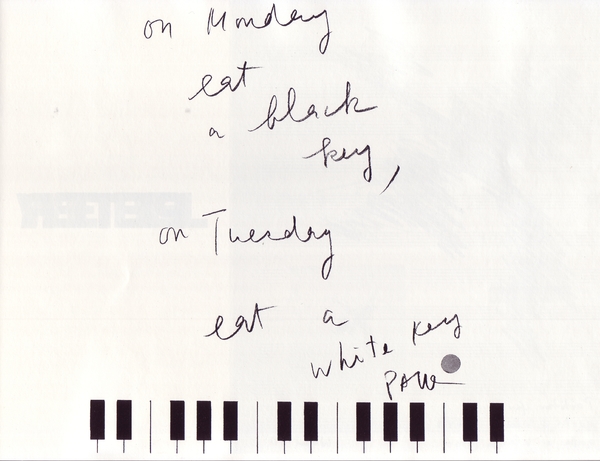 on Monday
eat
a black
key,
on Tuesday
eat a
white key